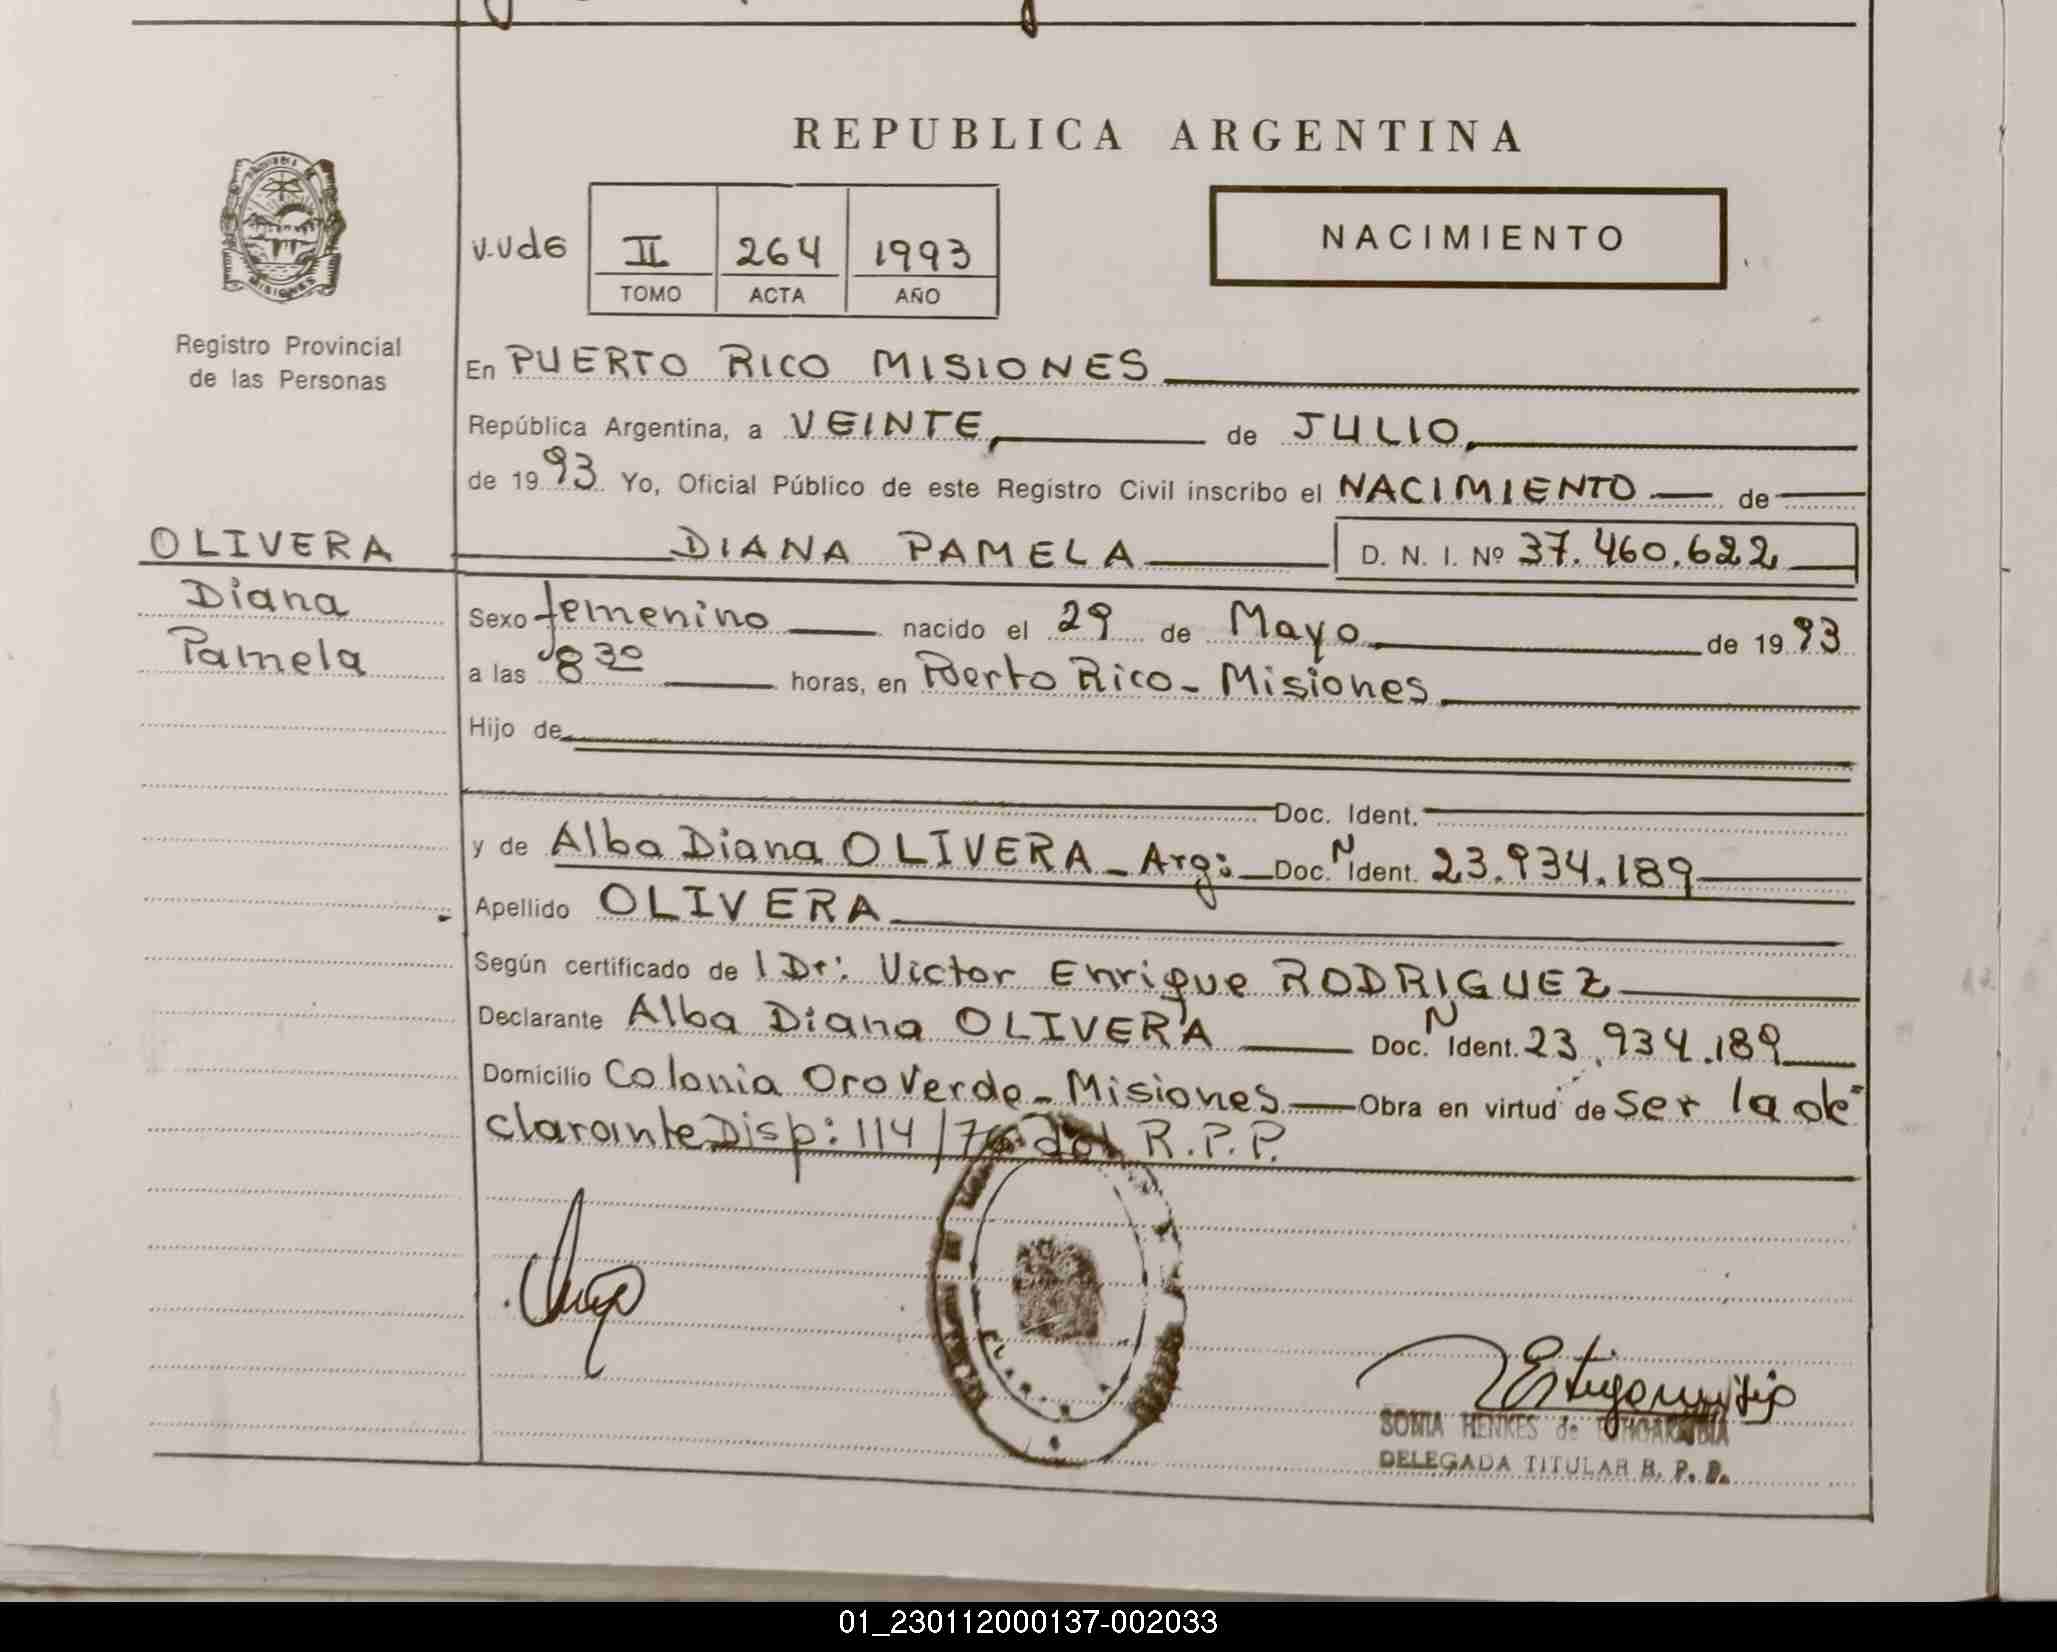 REPUBLICA ARGENTINA
MISIONES
v.vd6 II 264 1993
TOMO ACTA AÑO
NACIMIENTO
Registro Provincial
de las Personas
En PUERTO RICO MISIONES
República Argentina, a VEINTE, de JULIO,
de 1993 Yo, Oficial Público de este Registro Civil inscribo el NACIMIENTO de
OLIVERA
Diana
Pamela
DIANA PAMELA D. N. I. Nº 37.460.622
Sexo femenino nacido el 29 de Mayo de 1993
a las 8 30 horas, en Puerto Rico - Misiones
Hijo de
Doc. Ident.
y de Alba Diana OLIVERA - Arg: Doc. N Ident. 23.934.189
Apellido OLIVERA
Según certificado de l Dr: Victor Enrique RODRIGUEZ
Declarante Alba Diana OLIVERA Doc. N Ident. 23.934.189
Domicilio Colonia Oro Verde - Misiones Obra en virtud de ser la de=
clarante Disp: 114/76 del R.P.P.
SONIA HENKES de
DELEGADA TITULAR R. P. P.
01_230112000137-002033